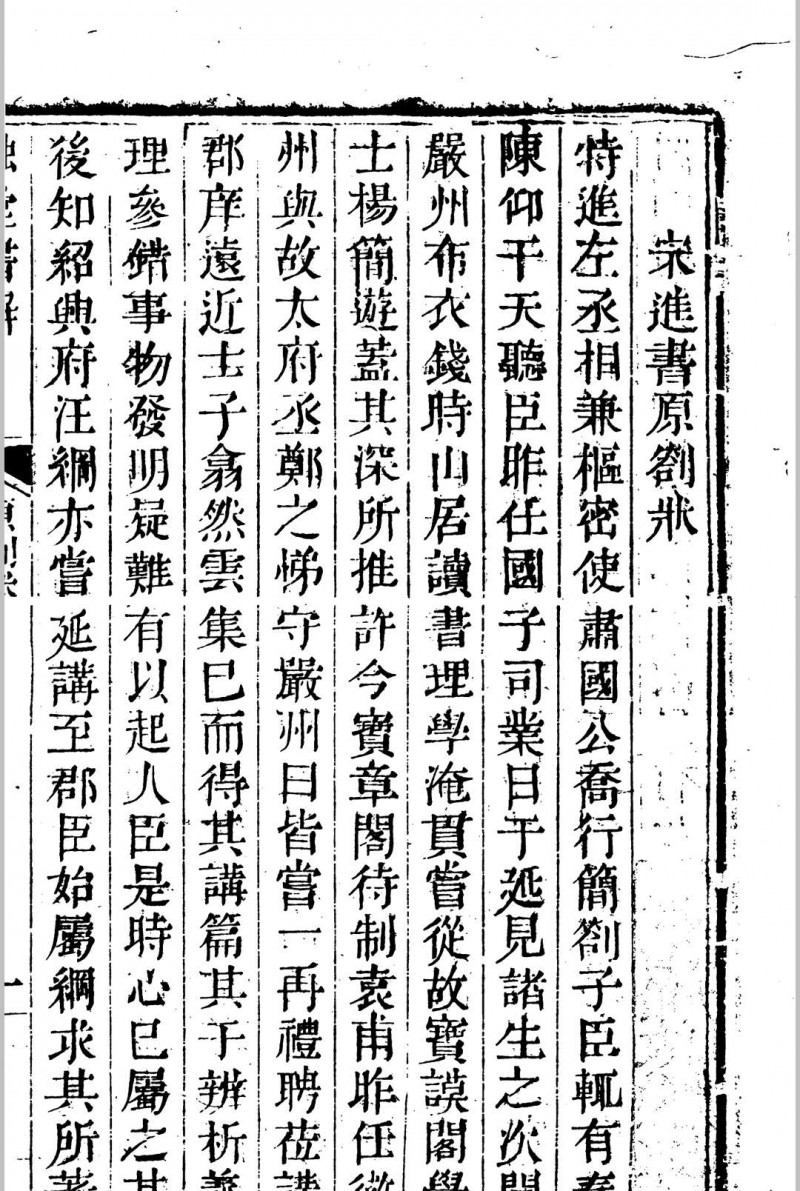 宋進書原劄狀
特進左丞相兼樞密使肅國公喬行簡劄子臣輒有奏
陳仰干天聽臣昨任國子司業日于延見諸生之次聞
嚴州布衣錢時山居讀書理學淹貫嘗從故寶謨閣學
士楊簡遊蓋其深所推許今寶章閣待制袁甫昨任徽
州與故太府丞鄭之悌守嚴州日皆嘗一再禮聘莅講
郡庠遠近士子翕然雲集已而得其講篇其于辨析義
理參錯事物發明疑難有以起人臣是時心已屬之其
後知紹興府汪綱亦嘗延講至郡臣始屬綱求其所著